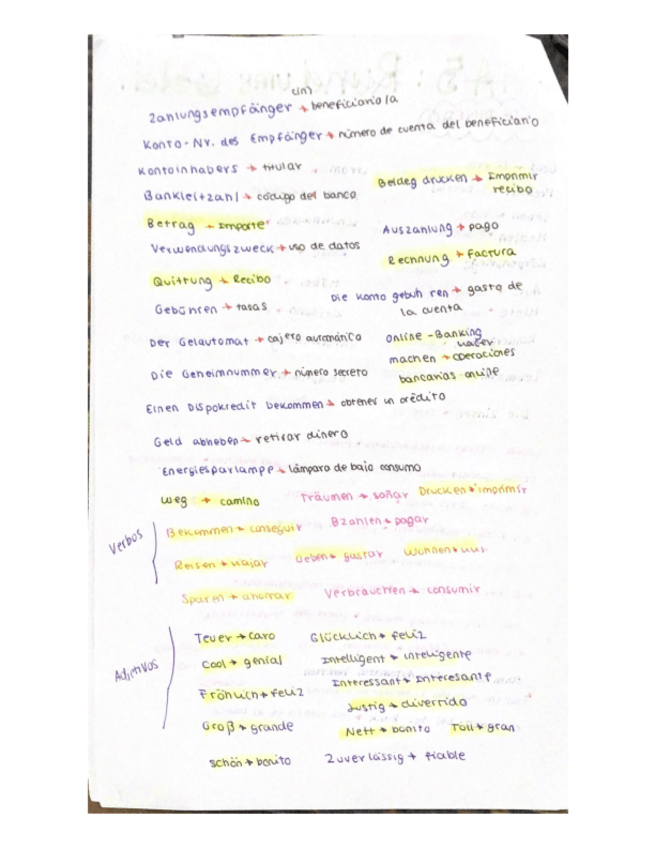 (in)
Zahlungsempfänger → beneficiario/a
Konto-Nr. des Empfänger → número de cuenta del beneficiario
Kontoinhabers → titular
Beldeg drucken → Imprimir recibo
Bankleitzahl → código del banco
Betrag → Importe
Auszahlung → pago
Verwendungszweck → uso de datos
Rechnung → factura
Quittung → Recibo
Die Konto gebuhren → gasto de la cuenta
Gebühren → tasas
Der Gelautomat → cajero automático
Online-Banking machen → hacer operaciones bancarias online
Die Geheimnummer → número secreto
Einen Dispokredit bekommen → obtener un crédito
Geld abheben → retirar dinero
Energiesparlampe → lámpara de bajo consumo
Weg → camino
Träumen → soñar
Drucken → imprimir
Verbos
Bekommen → conseguir
Bzahlen → pagar
Reisen → viajar
Geben → gastar
Wohnen →
Sparen → ahorrar
Verbrauchen → consumir
Adjetivos
Teuer → caro
Glücklich → feliz
Cool → genial
Intelligent → inteligente
Interessant → interesante
Fröhlich → feliz
Lustig → divertido
Groß → grande
Nett → bonito
Toll → gran
Schön → bonito
Zuverlässig → fiable